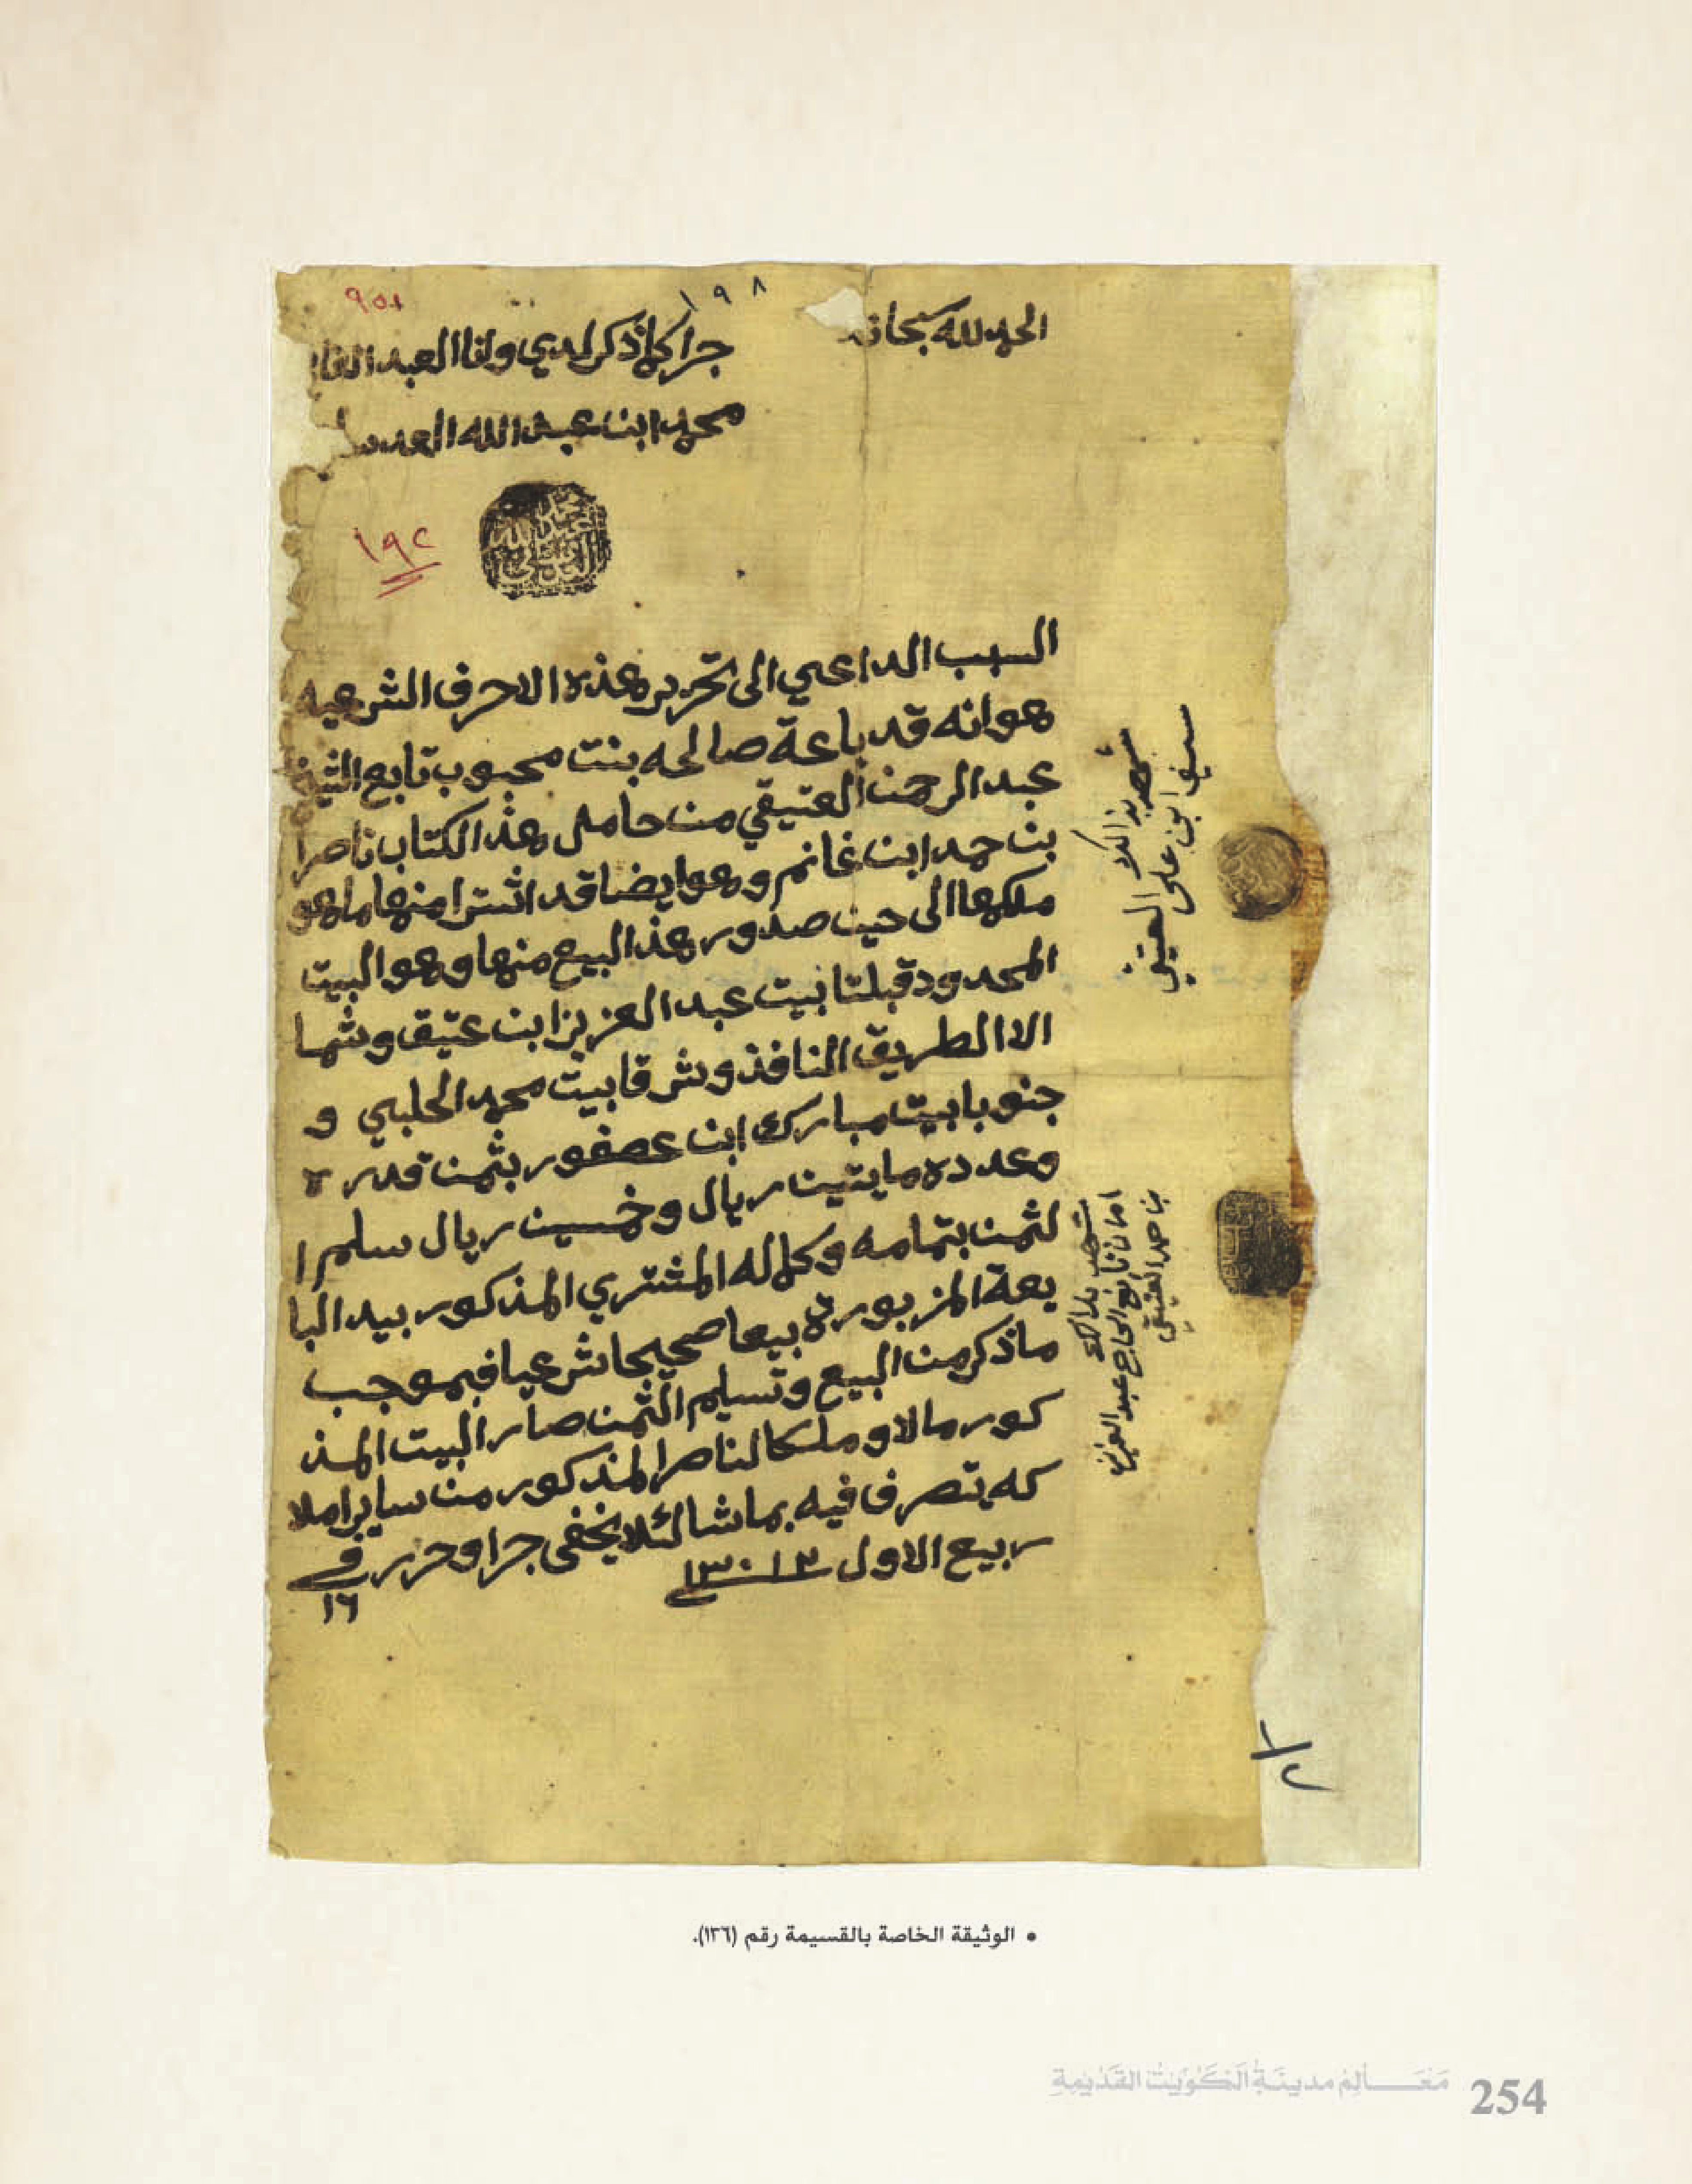 ٩٥١
١٩٨
الحمد لله سبحانه
جرا كما ذكر لدي وانا العبد الفاني
محمد ابن عبد الله العدساني
١٩٢
السبب الداعي الى تحرير هذه الاحرف الشرعيه
هو انه قد باعة صالحه بنت محبوب تابع الشيخ
عبد الرحمن العتيقي من حامل هذا الكتاب ناصر
بن حمد ابن غانم وهو ايضا قد اشترا منها ما هو
ملكها الى حين صدور هذ البيع منها وهو البيت
المحدود قبلتا بيت عبد العزيز ابن عتيق وشما
الا الطريق النافذ وشرقا بيت محمد الحلبي و
جنوبا بيت مبارك ابن عصفور بثمن قدره
وعدده مايتين ريال وخمسين ريال سلم ا
لثمن بتمامه وكماله المشتري المذكور بيد البا
يعة المزبورة بيعا صحيحا شرعيا فبموجب
ما ذكر من البيع وتسليم الثمن صار البيت المذ
كور مالا وملكا لناصر المذكور من ساير املا
كه يتصرف فيه بما شا لئلا يخفى جرا وحرر في
١٦
ربيع الاول ١٣٠١٣
شهد بذالك
سيف ابن علي العتيقي
شهد بذالك
امان تابع الحاج عبد العزيز
بن حمد العتيقي
١/٢
• الوثيقة الخاصة بالقسيمة رقم (١٣٦).
مَعَالِمُ مدينَةِ الكُوَيْتْ القَدْيمةِ
254